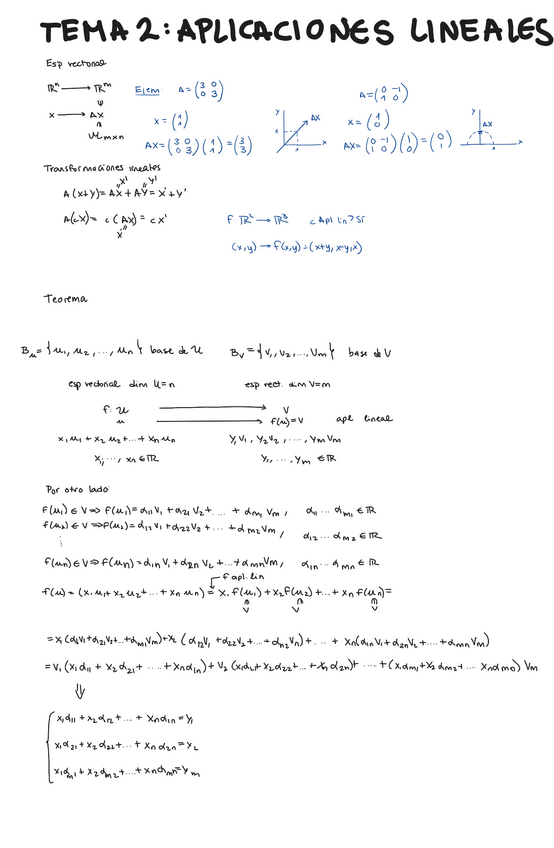 TEMA 2: APLICACIONES LINEALES
Esp vectorial
ℝⁿ ⟶ ℝᵐ
Ejem: A = (3 0 / 0 3)
A = (0 -1 / 1 0)
x ⟶ AX
X = (1 / 1)
X = (1 / 0)
M m×n
AX = (3 0 / 0 3) (1 / 1) = (3 / 3)
AX = (0 -1 / 1 0) (1 / 0) = (0 / 1)
y AX x
y AX x
Transformaciones lineales
A(x+y) = AX + AY = X' + Y'
A(cX) = c(AX) = cX'
f: ℝ² ⟶ ℝ³ ¿Apl lin? SÍ
(x,y) → f(x,y) = (x+y, x-y, x)
Teorema
B_u = {u₁, u₂, ..., uₙ} base de U
B_v = {v₁, v₂, ..., vₘ} base de V
esp vectorial dim U = n
esp vect. dim V = m
f: U ⟶ V
u ⟶ f(u) = V apl lineal
x₁u₁ + x₂u₂ + ... + xₙuₙ
y₁v₁, y₂v₂, ..., yₘvₘ
x₁, ..., xₙ ∈ ℝ
y₁, ... yₘ ∈ ℝ
Por otro lado:
f(u₁) ∈ V ⟹ f(u₁) = α₁₁v₁ + α₂₁v₂ + ... + αₘ₁vₘ, α₁₁ ... αₘ₁ ∈ ℝ
f(u₂) ∈ V ⟹ f(u₂) = α₁₂v₁ + α₂₂v₂ + ... + αₘ₂vₘ, α₁₂ ... αₘ₂ ∈ ℝ
⋮
f(uₙ) ∈ V ⟹ f(uₙ) = α₁ₙv₁ + α₂ₙv₂ + ... + αₘₙvₘ, α₁ₙ ... αₘₙ ∈ ℝ
f apl. lin
f(u) = (x₁u₁ + x₂u₂ + ... + xₙuₙ) = x₁f(u₁) + x₂f(u₂) + ... + xₙf(uₙ) =
V V V
= x₁(α₁₁v₁ + α₂₁v₂ + ... + αₘ₁vₘ) + x₂(α₁₂v₁ + α₂₂v₂ + ... + αₙ₂vₙ) + ... + xₙ(α₁ₙv₁ + α₂ₙv₂ + ... + αₘₙvₘ)
= v₁(x₁α₁₁ + x₂α₂₁ + ... + xₙα₁ₙ) + v₂(x₁α₂₁ + x₂α₂₂ + ... + xₙα₂ₙ) + ... + (x₁αₘ₁ + x₂αₘ₂ + ... xₙαₘₙ) vₘ
⇓
x₁α₁₁ + x₂α₁₂ + ... + xₙα₁ₙ = y₁
x₁α₂₁ + x₂α₂₂ + ... + xₙα₂ₙ = y₂
x₁αₘ₁ + x₂αₘ₂ + ... + xₙαₘₙ = yₘ